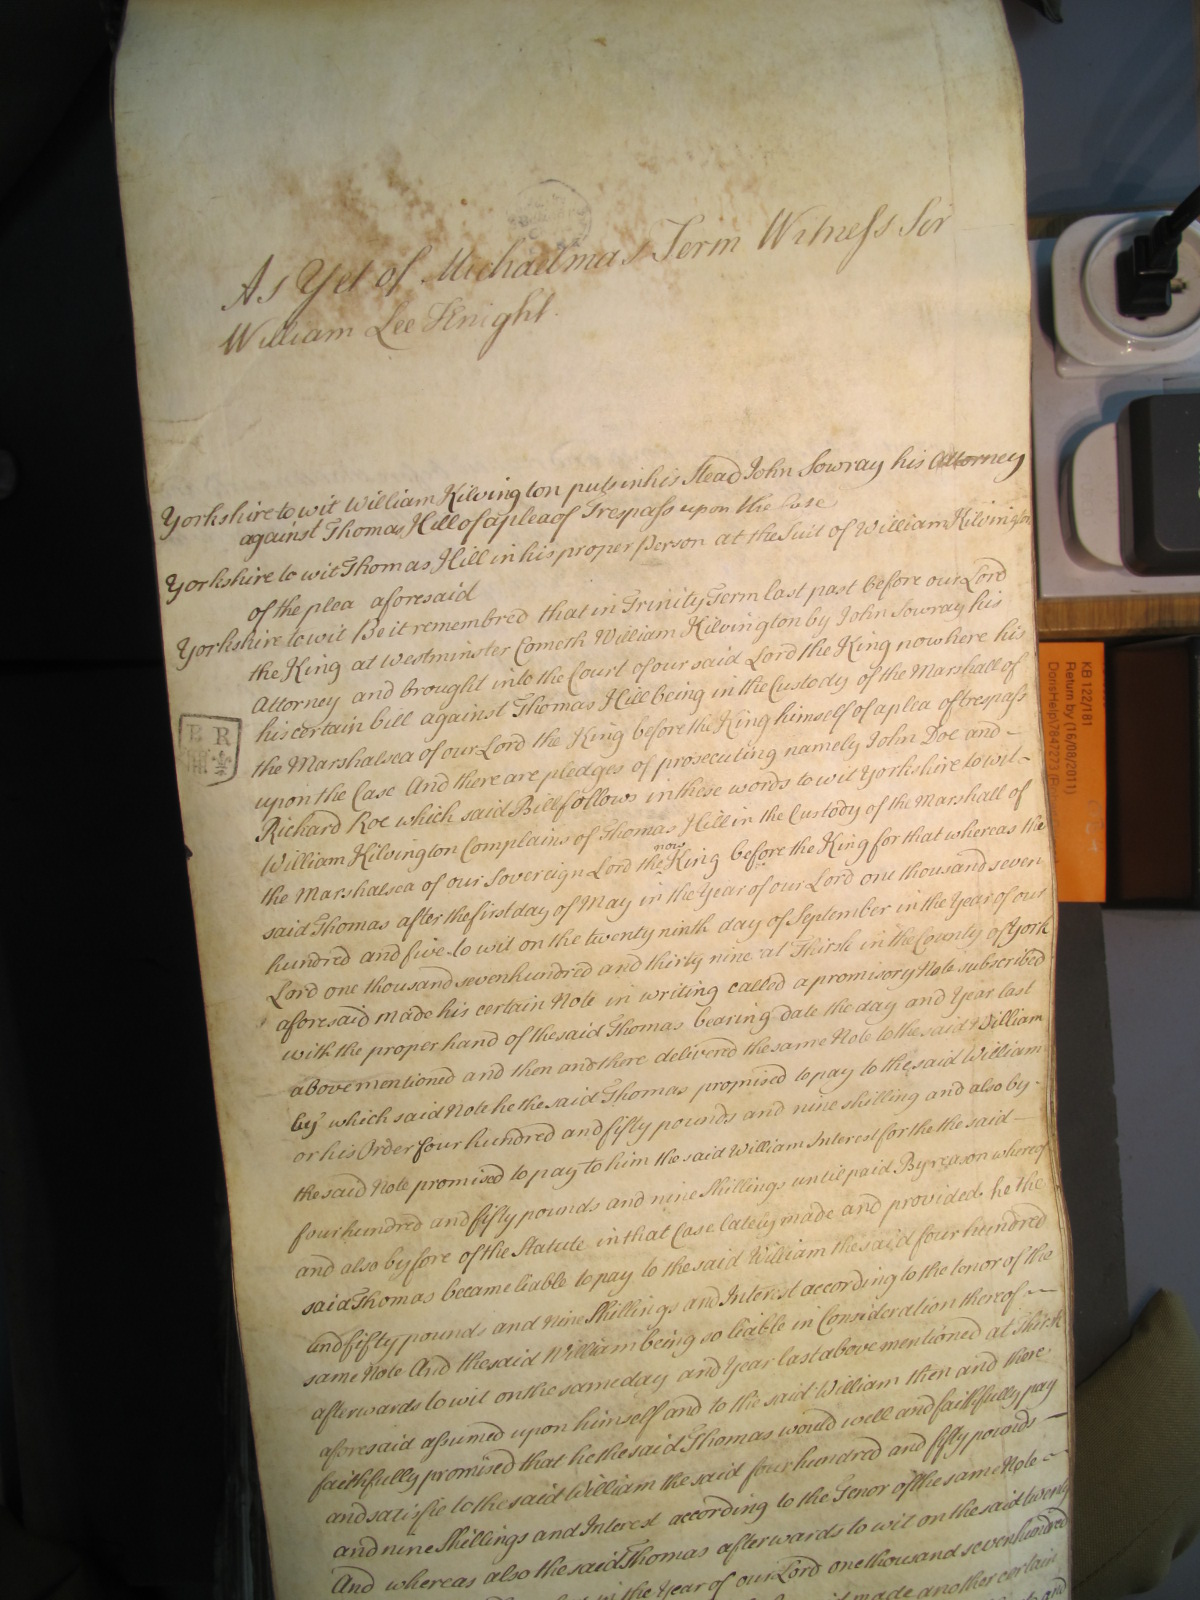 As Yet of Michaelmas Term Witness Sir
William Lee Knight.
Yorkshire to wit William Kilvington puts in his Stead John Sowray his Attorney
against Thomas Hill of a plea of Trespass upon the Case
Yorkshire to wit Thomas Hill in his proper Person at the Suit of William Kilvington
of the plea aforesaid
Yorkshire to wit Be it remembred that in Trinity Term last past before our Lord
the King at Westminster Cometh William Kilvington by John Sowray his
Attorney and brought into the Court of our said Lord the King now here his
his certain bill against Thomas Hill being in the Custody of the Marshall of
the Marshalsea of our Lord the King before the King himself of a plea of trespass
upon the Case And there are pledges of prosecuting namely John Doe and
Richard Roe which said Bill follows in these words to wit Yorkshire to wit
William Kilvington Complains of Thomas Hill in the Custody of the Marshall of
the Marshalsea of our Sovereign Lord the now King before the King for that whereas the
said Thomas after the first day of May in the Year of our Lord one thousand seven
hundred and five to wit on the twenty ninth day of September in the Year of our
Lord one thousand seven hundred and thirty nine at Thirsk in the County of York
aforesaid made his certain Note in writing called a promisory Note subscribed
with the proper hand of the said Thomas bearing date the day and Year last
above mentioned and then and there delivered the same Note to the said William
by which said Note he the said Thomas promised to pay to the said William
or his Order four hundred and fifty pounds and nine shilling and also by
the said Note promised to pay to him the said William Interest for the the said
four hundred and fifty pounds and nine Shillings until paid By reason whereof
and also by fore of the Statute in that Case lately made and provided he the
said Thomas became liable to pay to the said William the said four hundred
and fifty pounds and nine Shillings and Interest according to the tenor of the
same Note And the said William being so liable in Consideration thereof
afterwards to wit on the same day and Year last above mentioned at Thirsk
aforesaid assumed upon himself and to the said William then and there
faithfully promised that he the said Thomas would well and faithfully pay
and satisfie to the said William the said four hundred and fifty pounds
and nine Shillings and Interest according to the Tenor of the same Note
And whereas also the said Thomas afterwards to wit on the said twenty
in the Year of our Lord one thousand seven hundred
made another certain
and
E R
KB 122/181
Return by (16/08/2011)